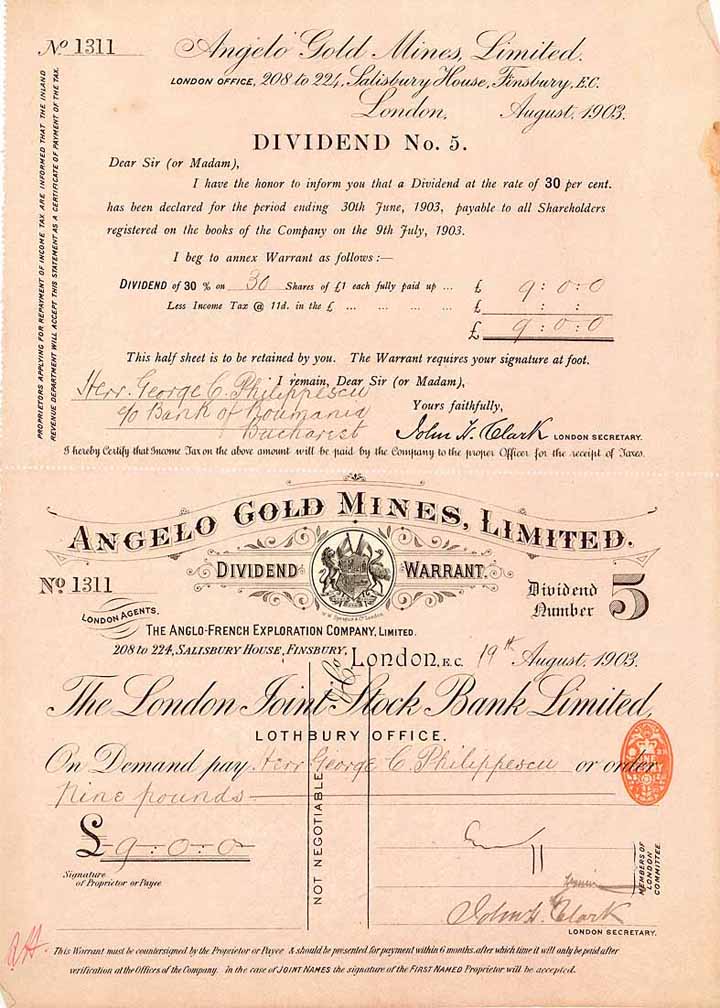 No 1311
Angelo Gold Mines, Limited.
LONDON OFFICE, 208 to 224, Salisbury House, Finsbury, E.C.
London, August, 1903.
DIVIDEND No. 5.
Dear Sir (or Madam),
I have the honor to inform you that a Dividend at the rate of 30 per cent.
has been declared for the period ending 30th June, 1903, payable to all Shareholders
registered on the books of the Company on the 9th July, 1903.
I beg to annex Warrant as follows:—
DIVIDEND of 30 % on 30 Shares of £1 each fully paid up ... £ 9:0:0
Less Income Tax @ 11d. in the £ ... ... ... ... £ : :
£ 9:0:0
This half sheet is to be retained by you. The Warrant requires your signature at foot.
I remain, Dear Sir (or Madam),
Herr George C. Philippescu
c/o Bank of Roumania
Bucharest
Yours faithfully,
John H. Clark LONDON SECRETARY.
I hereby Certify that Income Tax on the above amount will be paid by the Company to the proper Officer for the receipt of Taxes.
PROPRIETORS APPLYING FOR REPAYMENT OF INCOME TAX ARE INFORMED THAT THE INLAND
REVENUE DEPARTMENT WILL ACCEPT THIS STATEMENT AS A CERTIFICATE OF PAYMENT OF THE TAX.
ANGELO GOLD MINES, LIMITED.
DIVIDEND WARRANT.
No 1311
Dividend Number 5
LONDON AGENTS,
THE ANGLO-FRENCH EXPLORATION COMPANY, LIMITED.
208 to 224, SALISBURY HOUSE, FINSBURY,
London, E.C. 19th August, 1903.
The London Joint Stock Bank Limited,
LOTHBURY OFFICE.
On Demand pay Herr George C. Philippescu or order
Nine pounds
£9:0:0
& Co
NOT NEGOTIABLE
Signature
of Proprietor or Payee
MEMBERS OF
LONDON
COMMITTEE.
John H. Clark
LONDON SECRETARY.
This Warrant must be countersigned by the Proprietor or Payee & should be presented for payment within 6 months, after which time it will only be paid after
verification at the Offices of the Company. in the case of JOINT NAMES the signature of the FIRST NAMED Proprietor will be accepted.